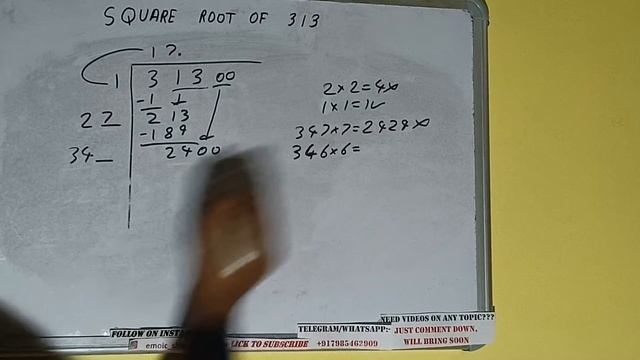 SQUARE ROOT OF 313
17.
1 313 00
-1 ↓
27 213
-189
34_ 2400
2×2=4×
1×1=1✓
347×7=2429×
346×6=
FOLLOW ON INSTA
emoic_s
CLICK TO SUBSCRIBE
TELEGRAM/WHATSAPP:-
+917985462909
NEED VIDEOS ON ANY TOPIC???
JUST COMMENT DOWN,
WILL BRING SOON